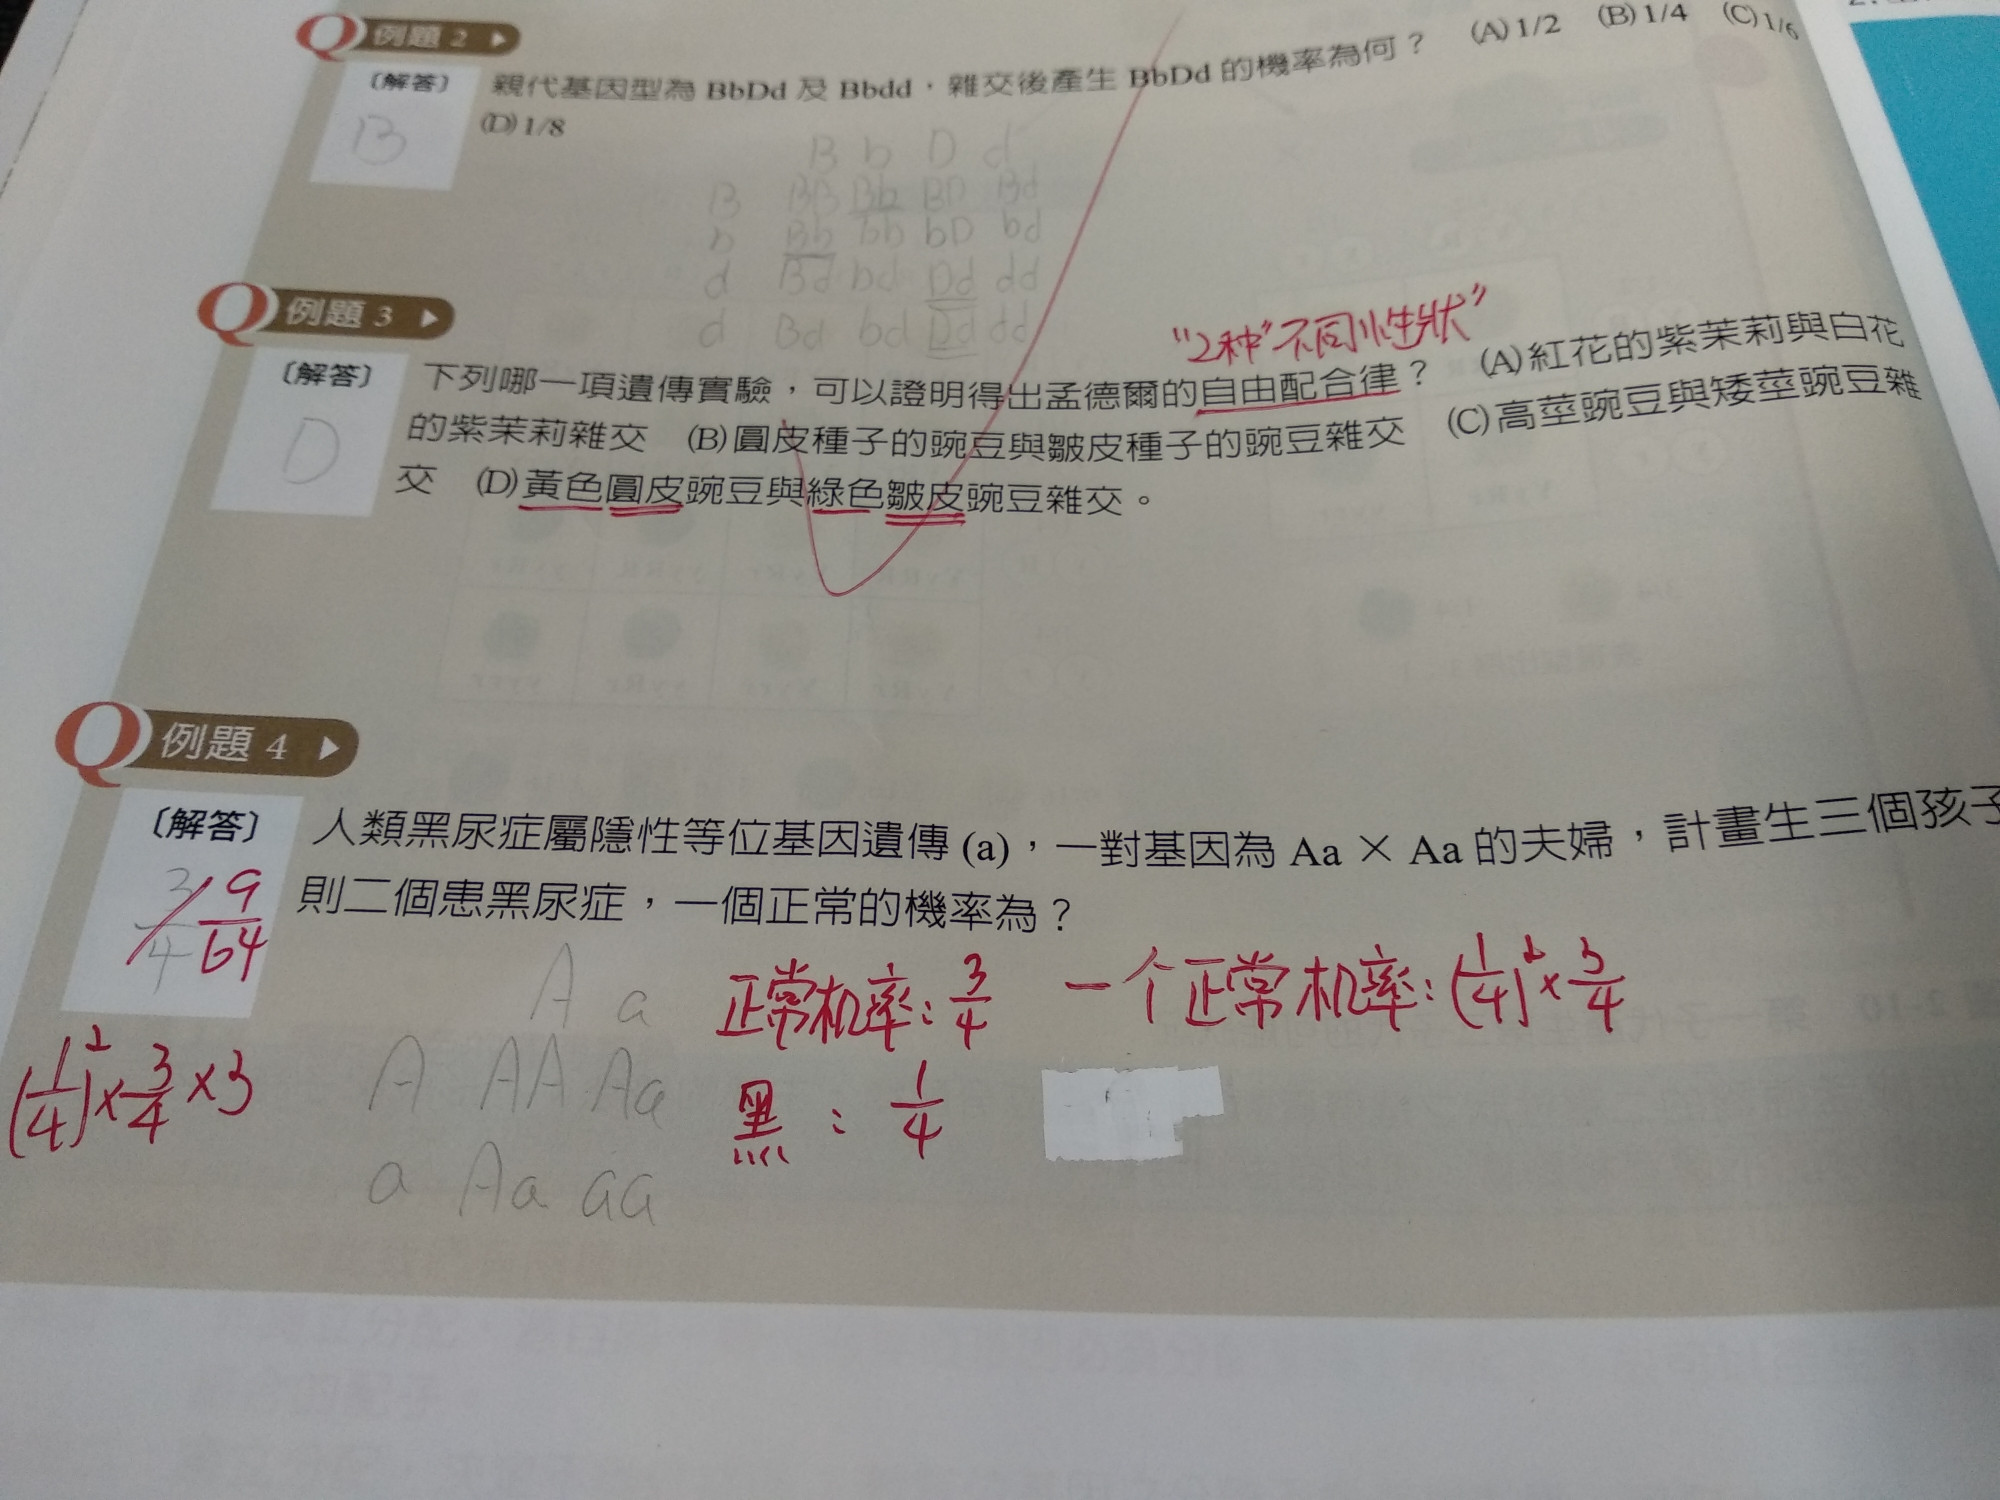 例題 2
〔解答〕 親代基因型為 BbDd 及 Bbdd,雜交後產生 BbDd 的機率為何? (A) 1/2 (B) 1/4 (C) 1/6
B (D) 1/8
B b D d
B BB Bb BD Bd
b Bb bb bD bd
d Bd bd Dd dd
d Bd bd Dd dd
例題 3
"2种"不同性狀"
〔解答〕 下列哪一項遺傳實驗,可以證明得出孟德爾的自由配合律? (A) 紅花的紫茉莉與白花
的紫茉莉雜交 (B) 圓皮種子的豌豆與皺皮種子的豌豆雜交 (C) 高莖豌豆與矮莖豌豆雜
D 交 (D) 黃色圓皮豌豆與綠色皺皮豌豆雜交。
例題 4
〔解答〕 人類黑尿症屬隱性等位基因遺傳 (a),一對基因為 Aa × Aa 的夫婦,計畫生三個孩子
則二個患黑尿症,一個正常的機率為?
3/4 9/64
A a
A AA Aa
a Aa aa
正常机率: 3/4 一个正常机率: (1/4)² × 3/4
黑: 1/4
(1/4)² × 3/4 × 3